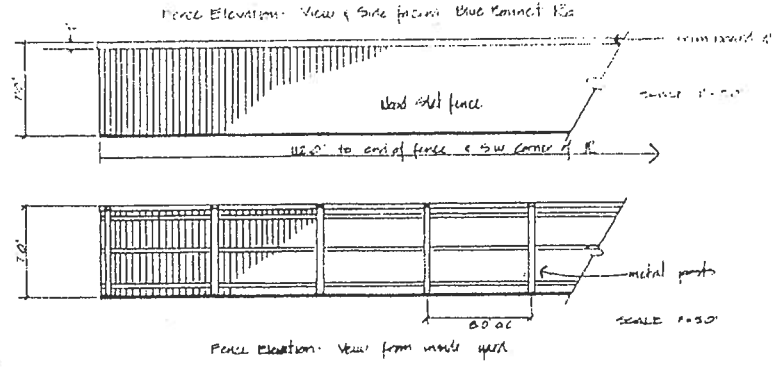 Fence Elevation- View & Side facing Blue Bonnet Rd
trim board
SCALE 1"=5.0'
7.0'
Wood slat fence
112.0' to end of fence & SW corner of
7.0'
metal posts
8.0' OC
SCALE 1"=5.0'
Fence Elevation- View from inside yard